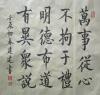 萬事從心
不拘于禮
明德布道
有異衆說